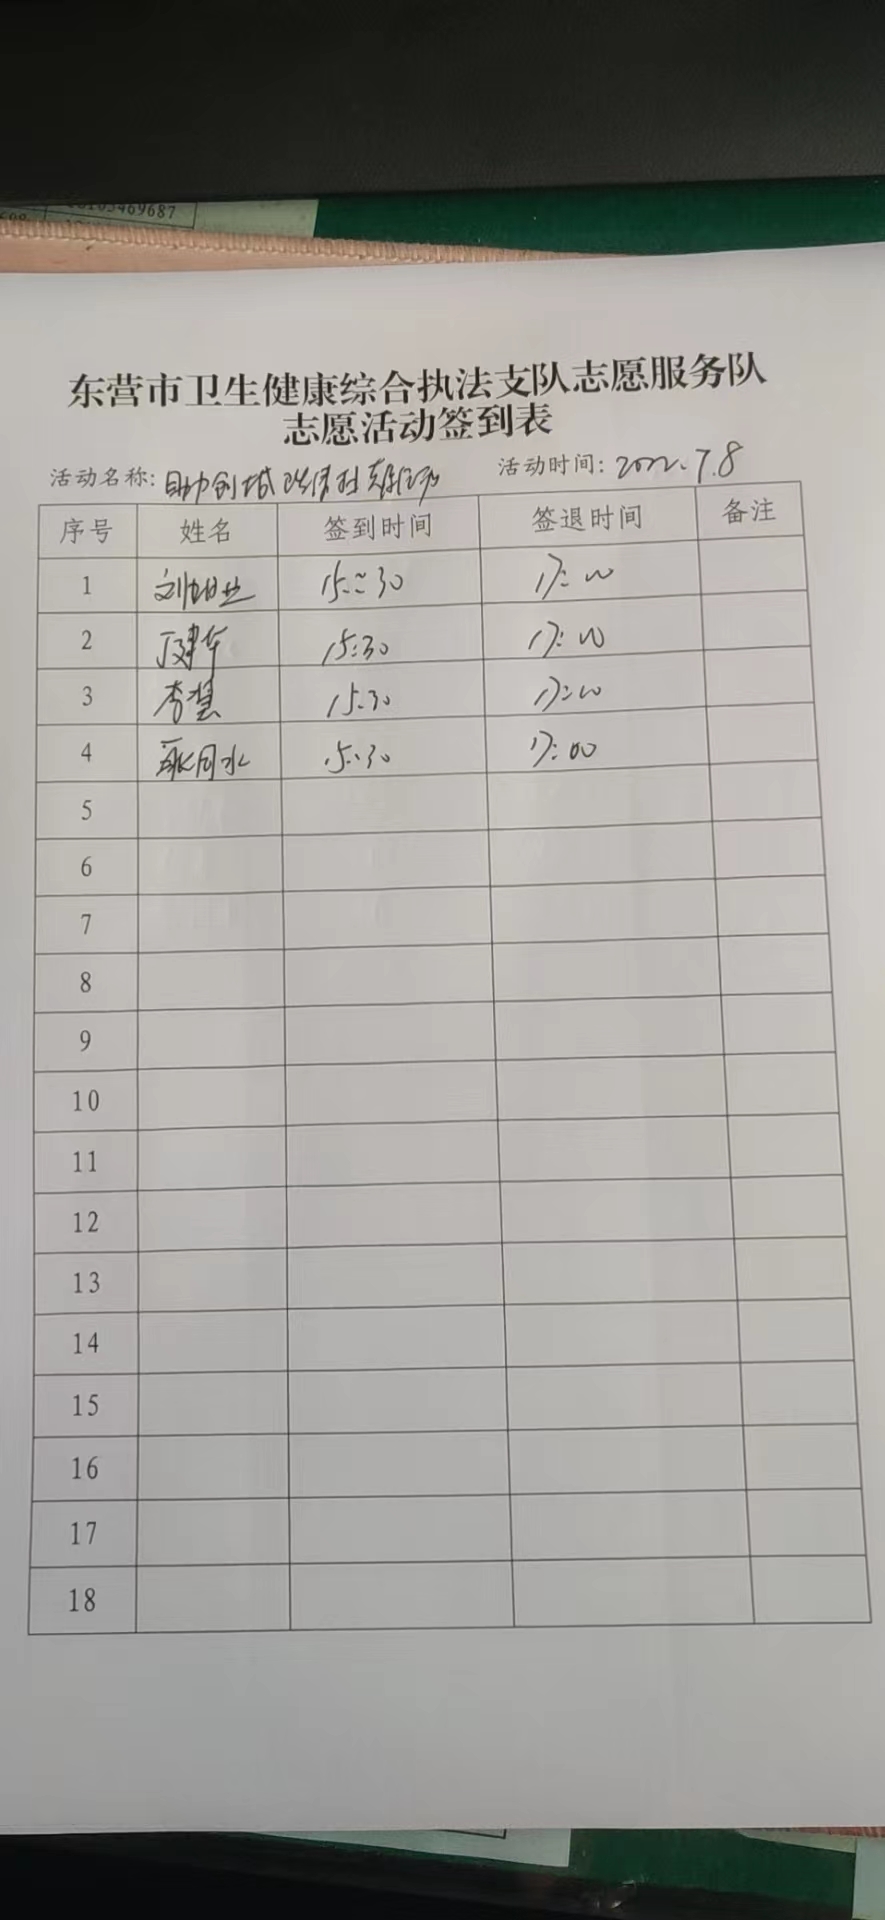 东营市卫生健康综合执法支队志愿服务队
志愿活动签到表
活动名称: 助力创城 活动时间: 2022.7.8
序号 姓名 签到时间 签退时间 备注
1 15:30 17:00
2 丁建华 15:30 17:00
3 李慧 15:30 17:00
4 15:30 17:00
5
6
7
8
9
10
11
12
13
14
15
16
17
18